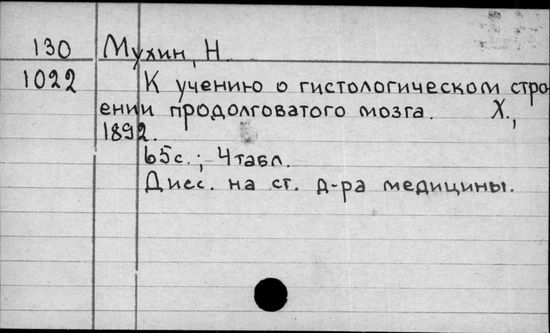 130 Мухин, Н.
1022 К учению о гистологическом стро
ении продолговатого мозга. Х.,
1892.
65с.; 4табл.
Дисс. на ст. д-ра медицины.